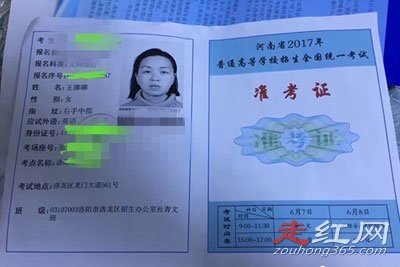 考 生
报名
报名科类
报名序
姓 名：王娜娜
性 别：女
指 纹：右手中指
应试外语：英语
身份证号：
考场座
考点名称：洛
考试地点：洛龙区龙门大道561号
班 级：03107003洛阳市洛龙区招生办公室社青文
班
河南省2017年
普通高等学校招生全国统一考试
准考证
考 试
时间表
时间
6月7日
6月8日
9:00-11:30
15:00-17:00
走红网
www.zouhong.com